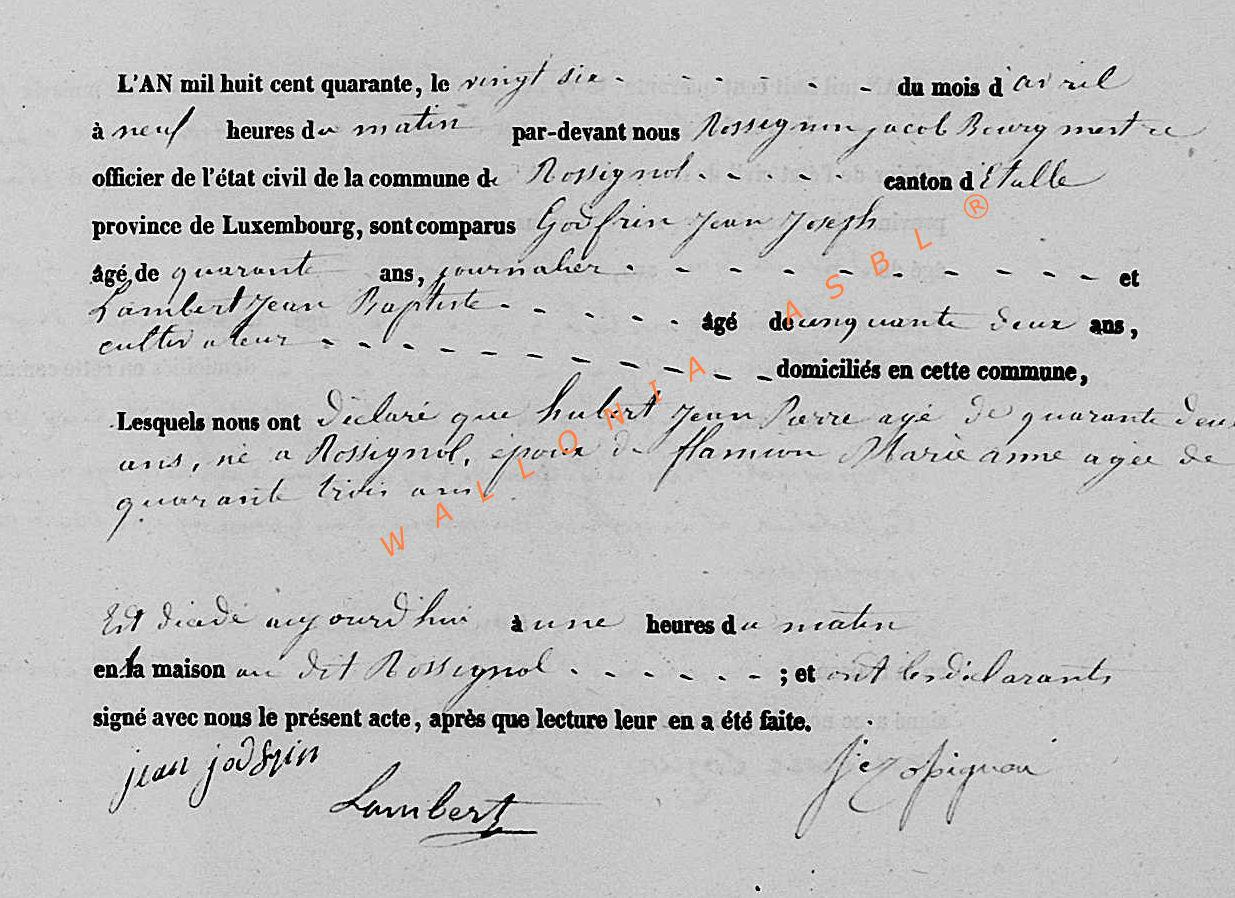 L'AN mil huit cent quarante, le vingt six - - - - - - du mois d'avril
à neuf heures du matin par-devant nous Rossignon jacob Bourgmestre
officier de l'état civil de la commune de Rossignol - - - - - canton d'Etalle
province de Luxembourg, sont comparus Godfrin Jean Joseph
âgé de quarante ans, journalier - - - - - - - - - - - et
Lambert Jean Baptiste - - - - - - âgé de cinquante deux ans,
cultivateur - - - - - - - - - - - - domiciliés en cette commune,
Lesquels nous ont déclaré que hubert Jean Pierre agé de quarante deux
ans, né a Rossignol, époux de flamion Marie anne agée de
quarante trois ans
Est décédé aujourd'hui à une heures du matin
en la maison au dit Rossignol - - - - - - ; et ont les déclarants
signé avec nous le présent acte, après que lecture leur en a été faite.
jean jodfrin
Lambert
WALLONIA ASBL ®